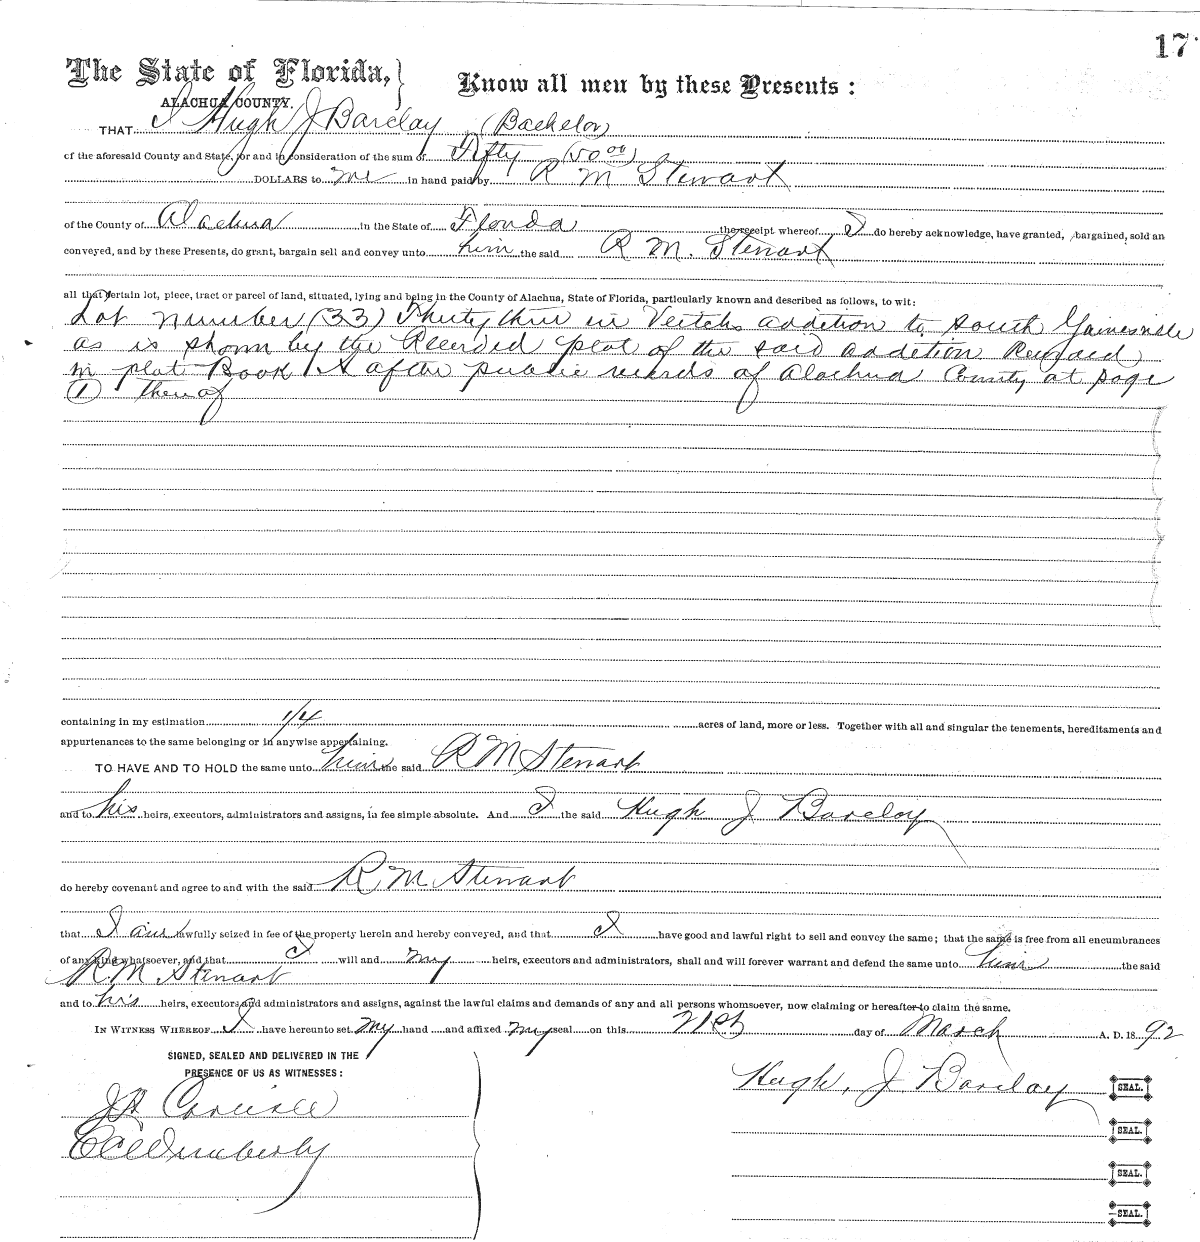 17
The State of Florida,
ALACHUA COUNTY.
Know all men by these Presents:
THAT I Hugh J Barclay (Bachelor)
of the aforesaid County and State, for and in consideration of the sum of Fifty (50 00)
DOLLARS to me in hand paid by R M Stewart
of the County of Alachua in the State of Florida the receipt whereof I do hereby acknowledge, have granted, bargained, sold an
conveyed, and by these Presents, do grant, bargain sell and convey unto him the said R M. Stewart
all that certain lot, piece, tract or parcel of land, situated, lying and being in the County of Alachua, State of Florida, particularly known and described as follows, to wit:
Lot number (33) Thirty three in Veitchs addition to South Gainesville
as is shown by the Recorded plat of the said addition Recorded
in plat Book A of the public records of Alachua County at page
(1) thereof
containing in my estimation 1/4 acres of land, more or less. Together with all and singular the tenements, hereditaments and
appurtenances to the same belonging or in anywise appertaining.
TO HAVE AND TO HOLD the same unto him the said R M Stewart
and to his heirs, executors, administrators and assigns, in fee simple absolute. And I the said Hugh J Barclay
do hereby covenant and agree to and with the said R M Stewart
that I am lawfully seized in fee of the property herein and hereby conveyed, and that I have good and lawful right to sell and convey the same; that the same is free from all encumbrances
of any kind whatsoever, and that I will and my heirs, executors and administrators, shall and will forever warrant and defend the same unto him the said
R. M Stewart
and to his heirs, executors and administrators and assigns, against the lawful claims and demands of any and all persons whomsoever, now claiming or hereafter to claim the same.
IN WITNESS WHEREOF I have hereunto set my hand and affixed my seal on this 21st day of March A. D. 18 92
SIGNED, SEALED AND DELIVERED IN THE
PRESENCE OF US AS WITNESSES:
Hugh, J. Barclay SEAL.
J A Carlisle
SEAL.
SEAL.
SEAL.